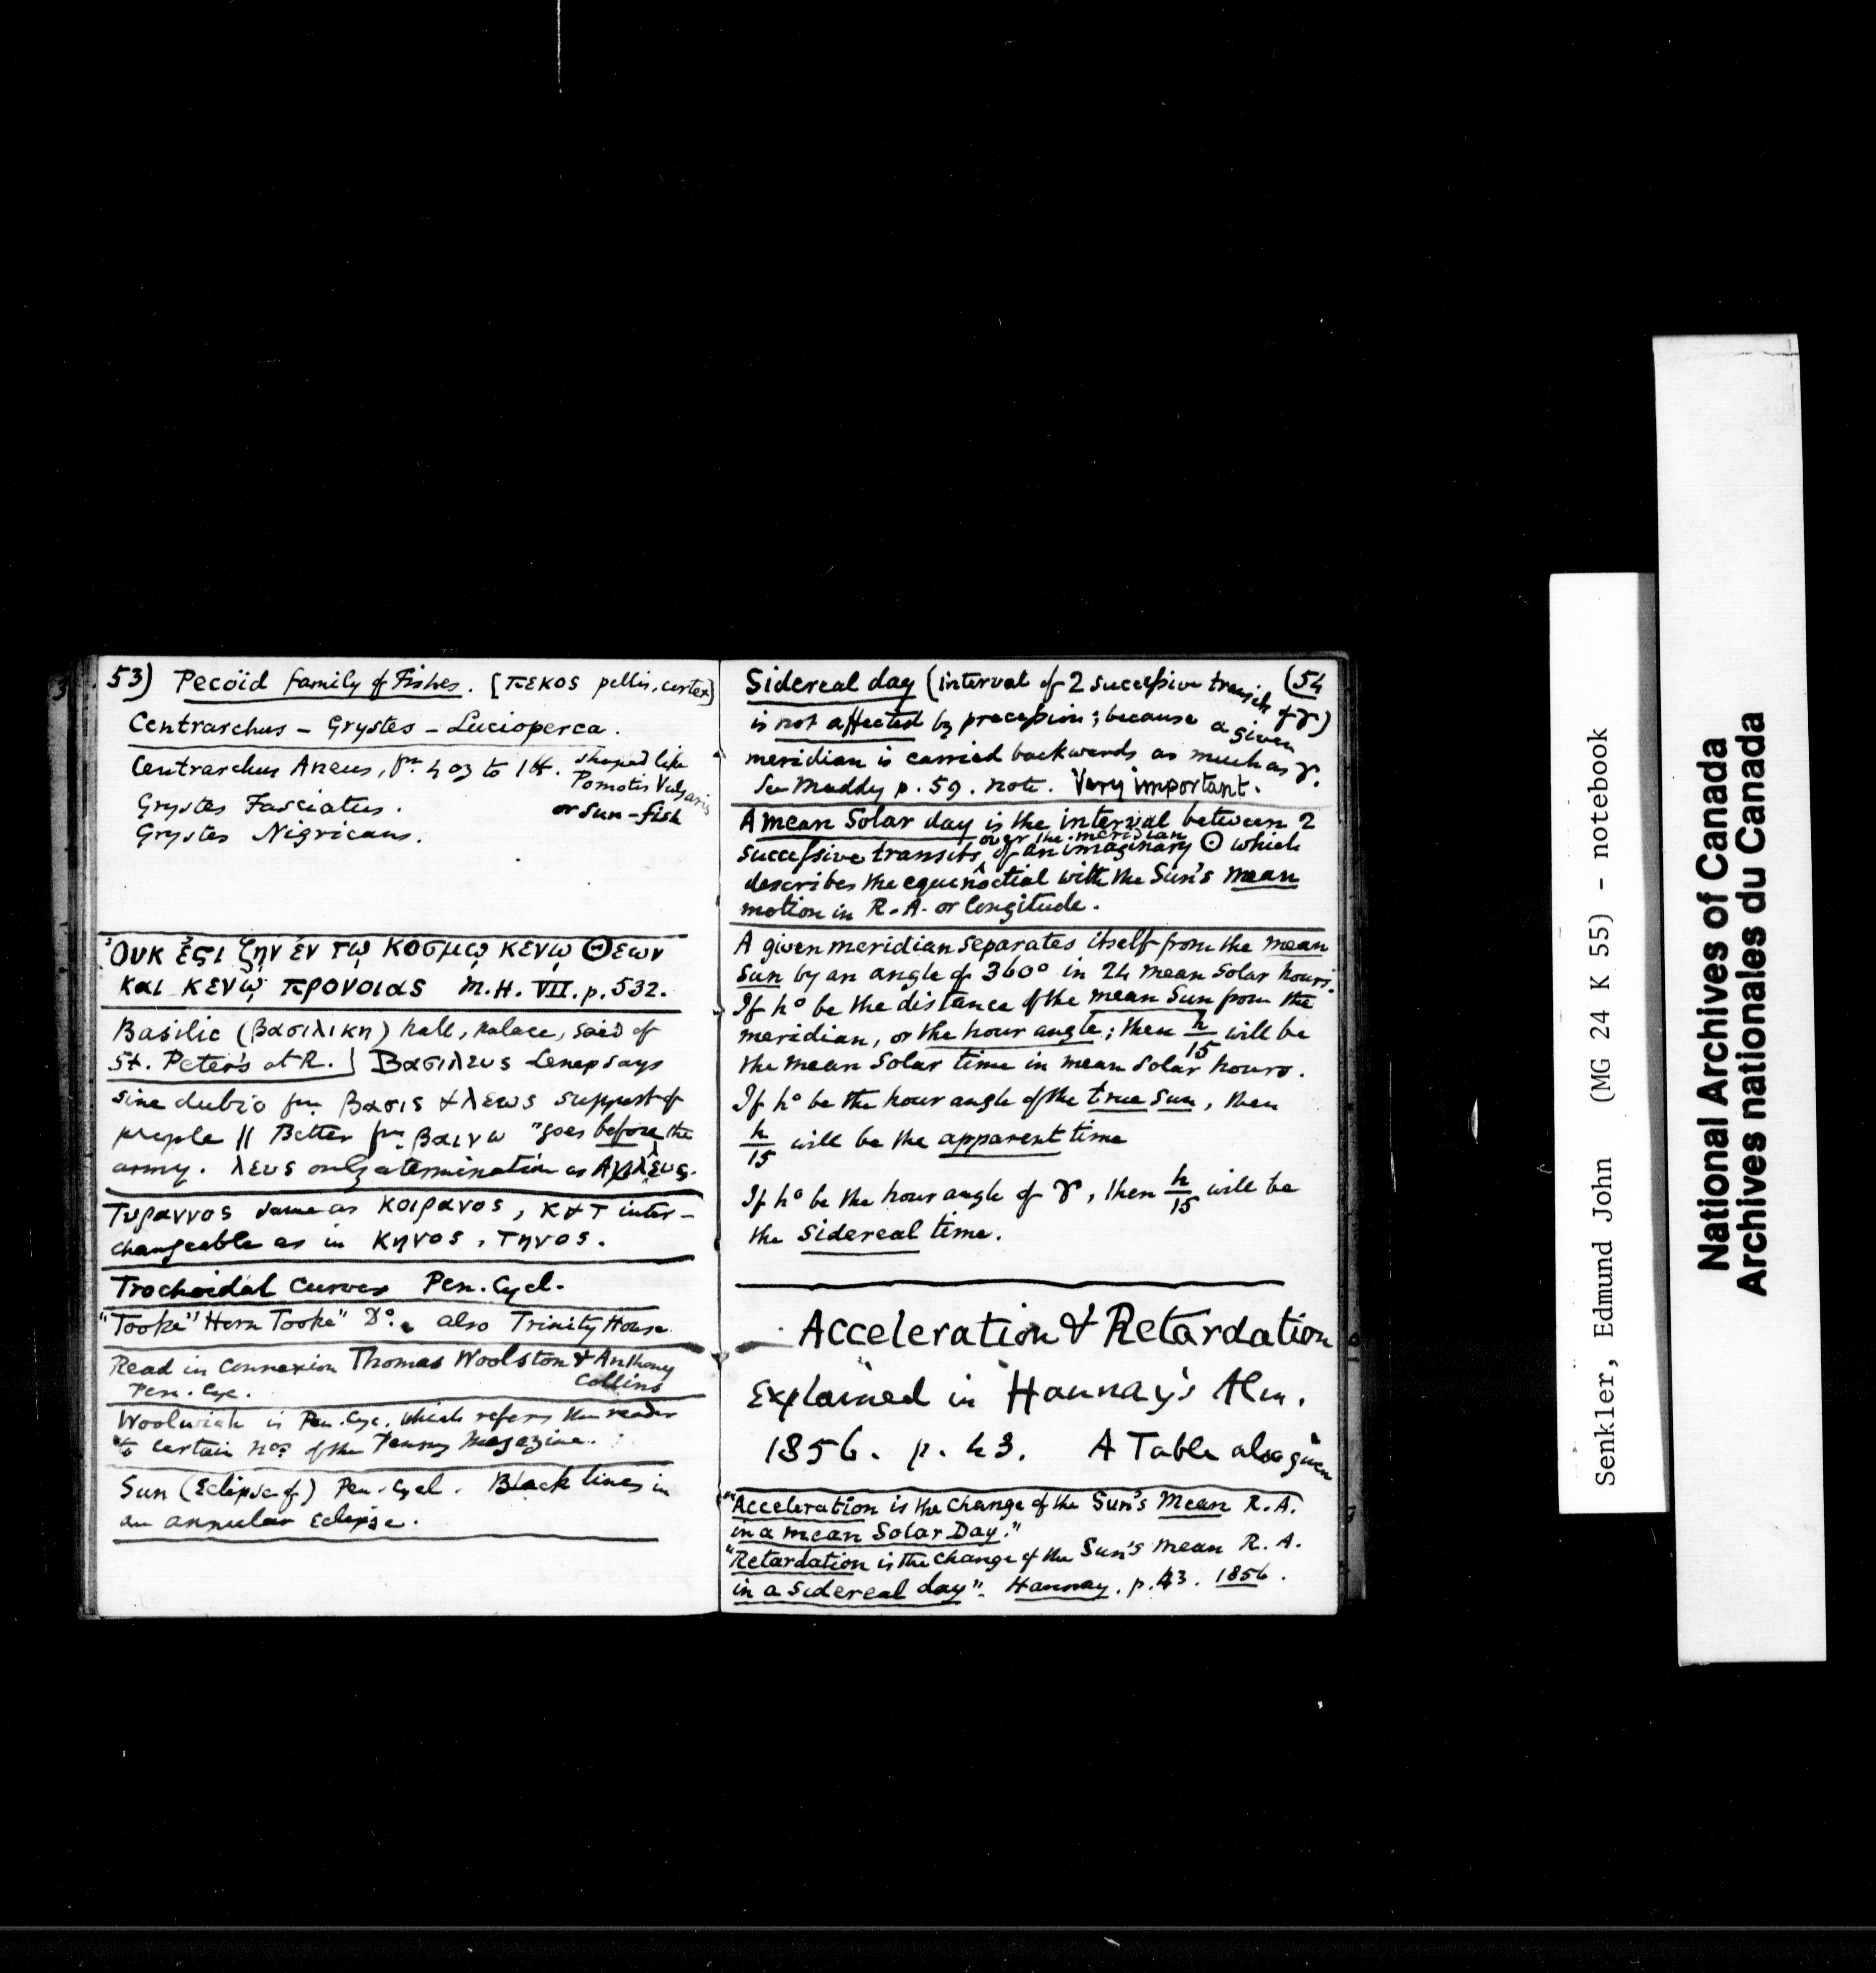 53) Pecoïd family of Fishes. [πεκος pellis, cortex]
Centrarchus – Grystes – Lucioperca.
Centrarchus Aneus, fm 4 oz to 1 ℔. shaped like
Pomotis Vulgaris
or Sun-fish
Grystes Fasciatus.
Grystes Nigricans.
Ὀυκ ἐϛι ζῃν ἐν τῳ κοσμῳ κενῳ Θεων
και κενῳ προνοιας M.H. VII. p. 532.
Basilic (βασιλικη) hall, palace, said of
St. Peter's at R.] Βασιλευς Lenep says
sine dubio fm βασις & λεως support of
people || Better fm βαινω "goes before the
army. λευς only a termination as Αχιλλευς.
Τυραννος same as Κοιρανος, κ & τ inter-
changeable as in κηνος, τηνος.
Trochoidal Curves Pen. Cycl.
"Tooke" "Horn Tooke" Do. also Trinity House
Read in Connexion Thomas Woolston & Anthony
Collins
Pen. Cyc.
Woolwich in Pen. Cyc. which refers the reader
to certain nos of the Penny Magazine.
Sun (Eclipse of) Pen. Cycl. Black lines in
an annular Eclipse.
(54
Sidereal day (interval of 2 successive transits of ♈)
is not affected by precession; because a given
meridian is carried backwards as much as ♈.
See Maddy p. 59. note. Very important.
A mean Solar day is the interval between 2
successive transits over the meridian of an imaginary ☉ which
describes the equinoctial with the Sun's mean
motion in R.A. or Longitude.
A given meridian separates itself from the mean
Sun by an angle of 360° in 24 mean Solar hours.
If h° be the distance of the mean Sun from the
meridian, or the hour angle; then h/15 will be
the mean Solar time in mean Solar hours.
If h° be the hour angle of the true Sun, then
h/15 will be the apparent time
If h° be the hour angle of ♈, then h/15 will be
the Sidereal time.
Acceleration & Retardation
Explained in Hannay's Alm.
1856. p. 43. A Table also given
"Acceleration is the change of the Sun's Mean R.A.
in a mean Solar Day."
"Retardation is the change of the Sun's mean R.A.
in a Sidereal day". Hannay. p. 43. 1856.
Senkler, Edmund John (MG 24 K 55) - notebook
National Archives of Canada
Archives nationales du Canada